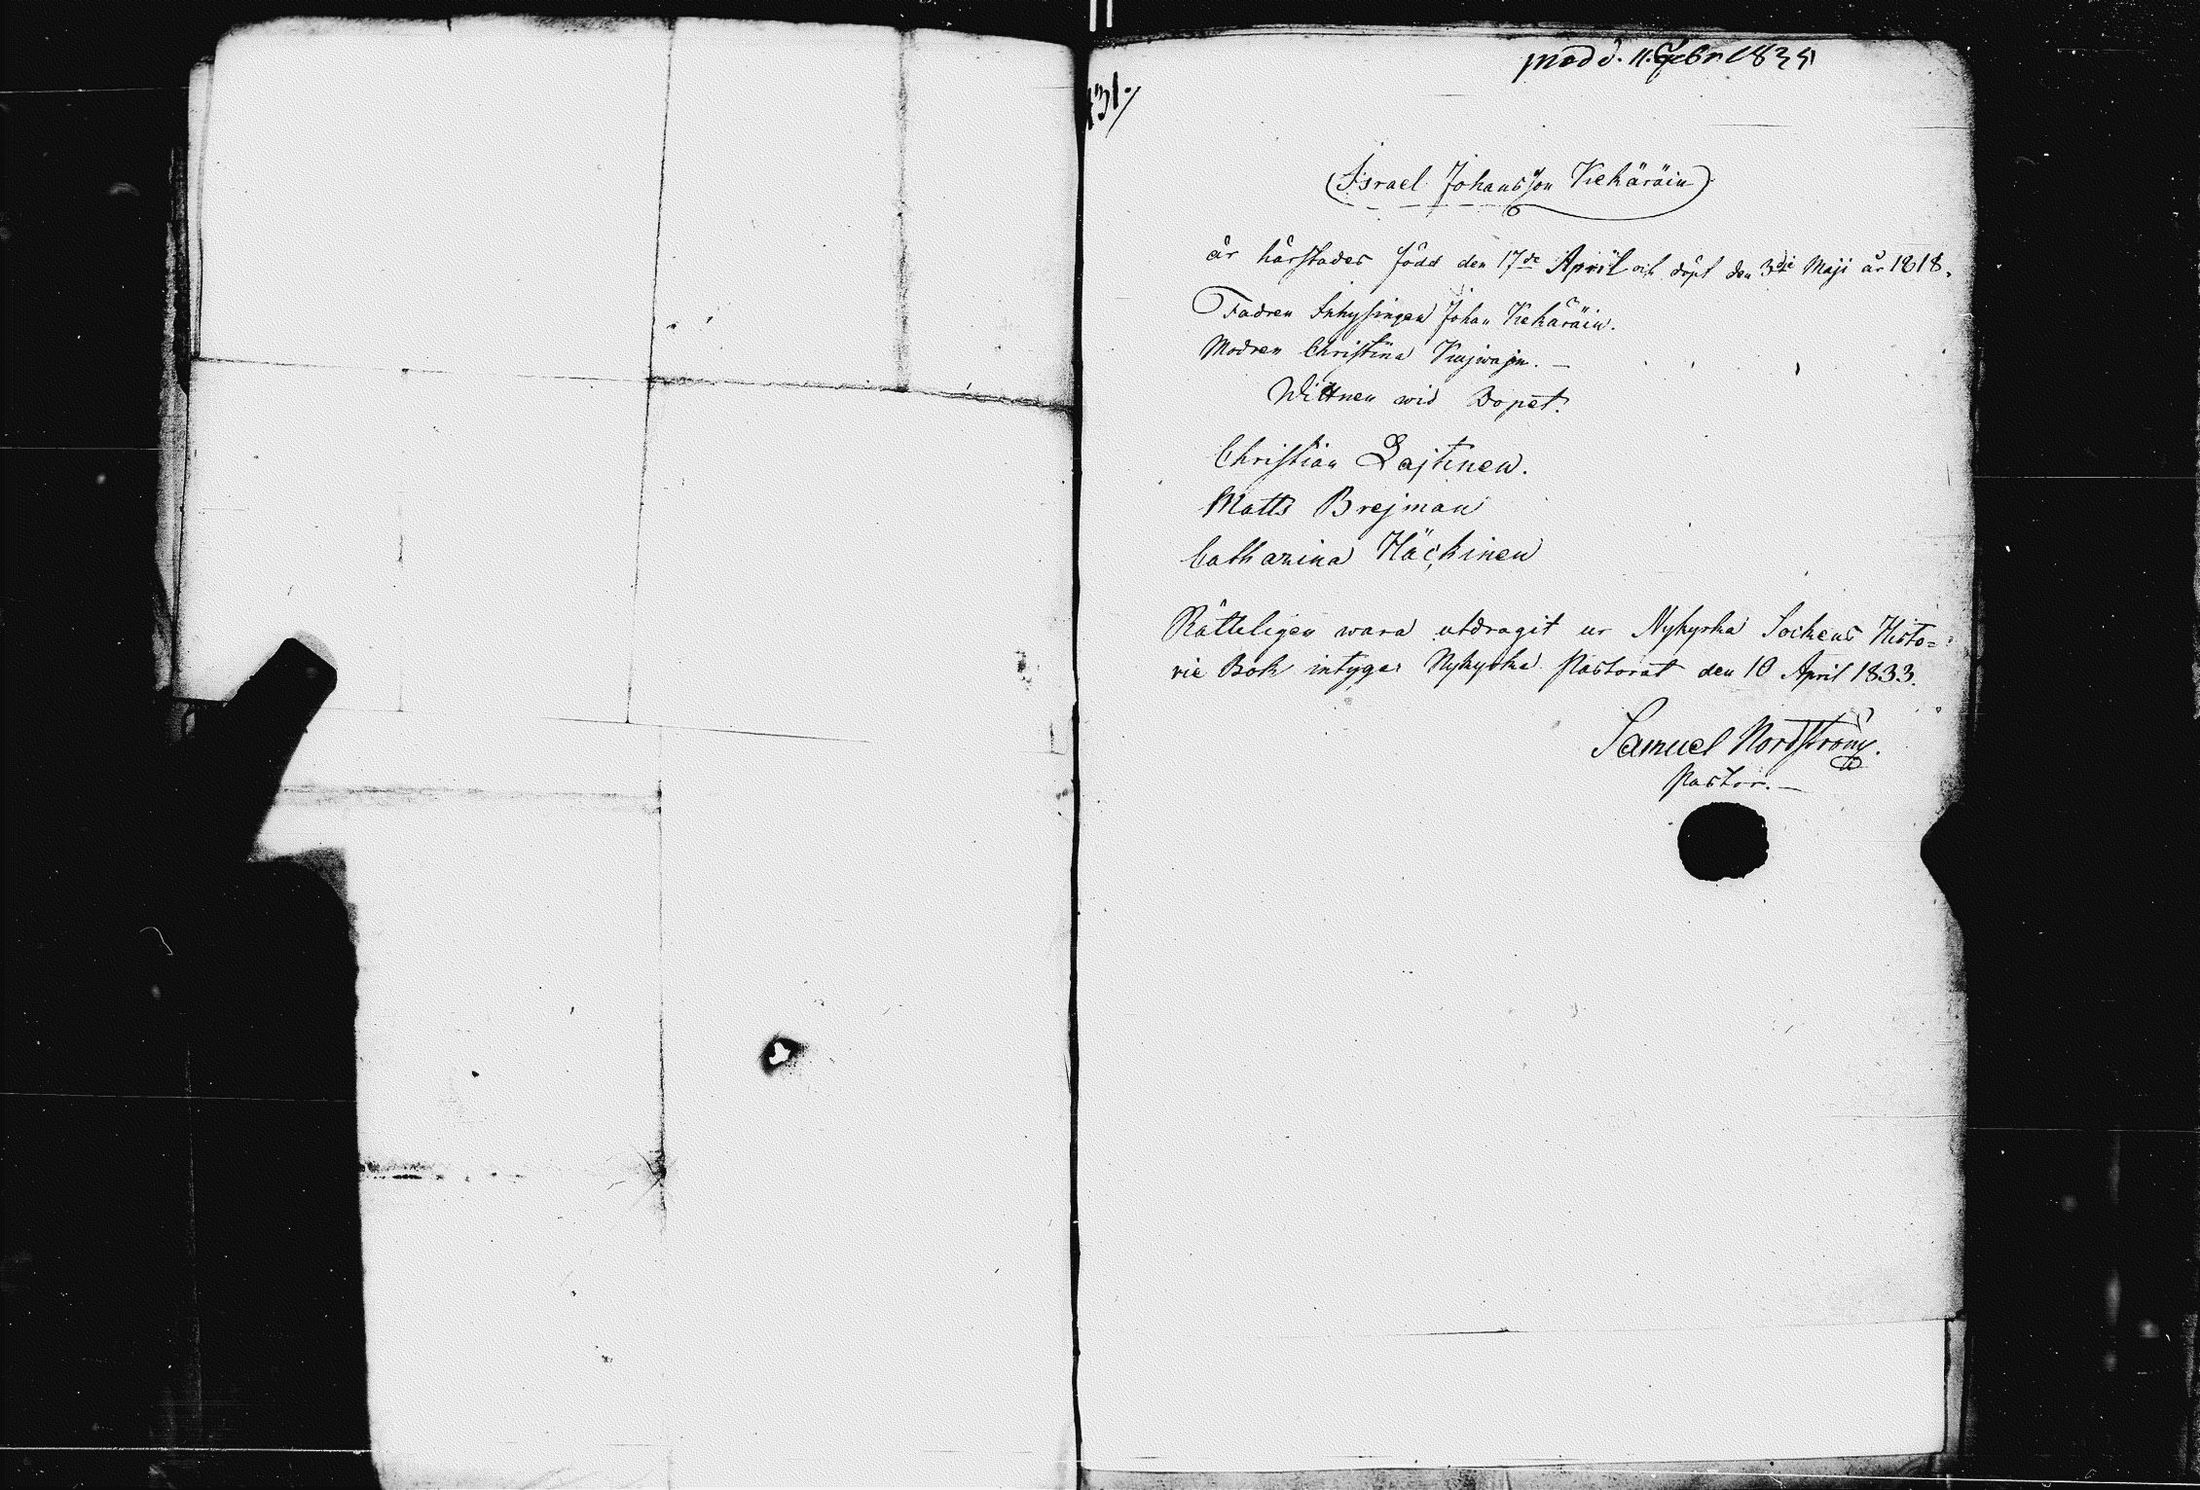 prod d. 11. Febr 1835
431./
Israel Johansson Kekäräin
är härstädes född den 17de April och döpt den 3die Maji år 1818.
Fadren Inhysingen Johan Kekäräin.
Modren Christina Kujwajn. —
Wittnen wid Dopet.
Christian Lajtinen.
Matts Brejman
Catharina Häckinen
Rätteligen wara utdragit ur Nykyrka Sockens Histo=
rie Bok intygar Nykyrka Pastorat den 10 April 1833.
Samuel Nordström.
Pastor. —